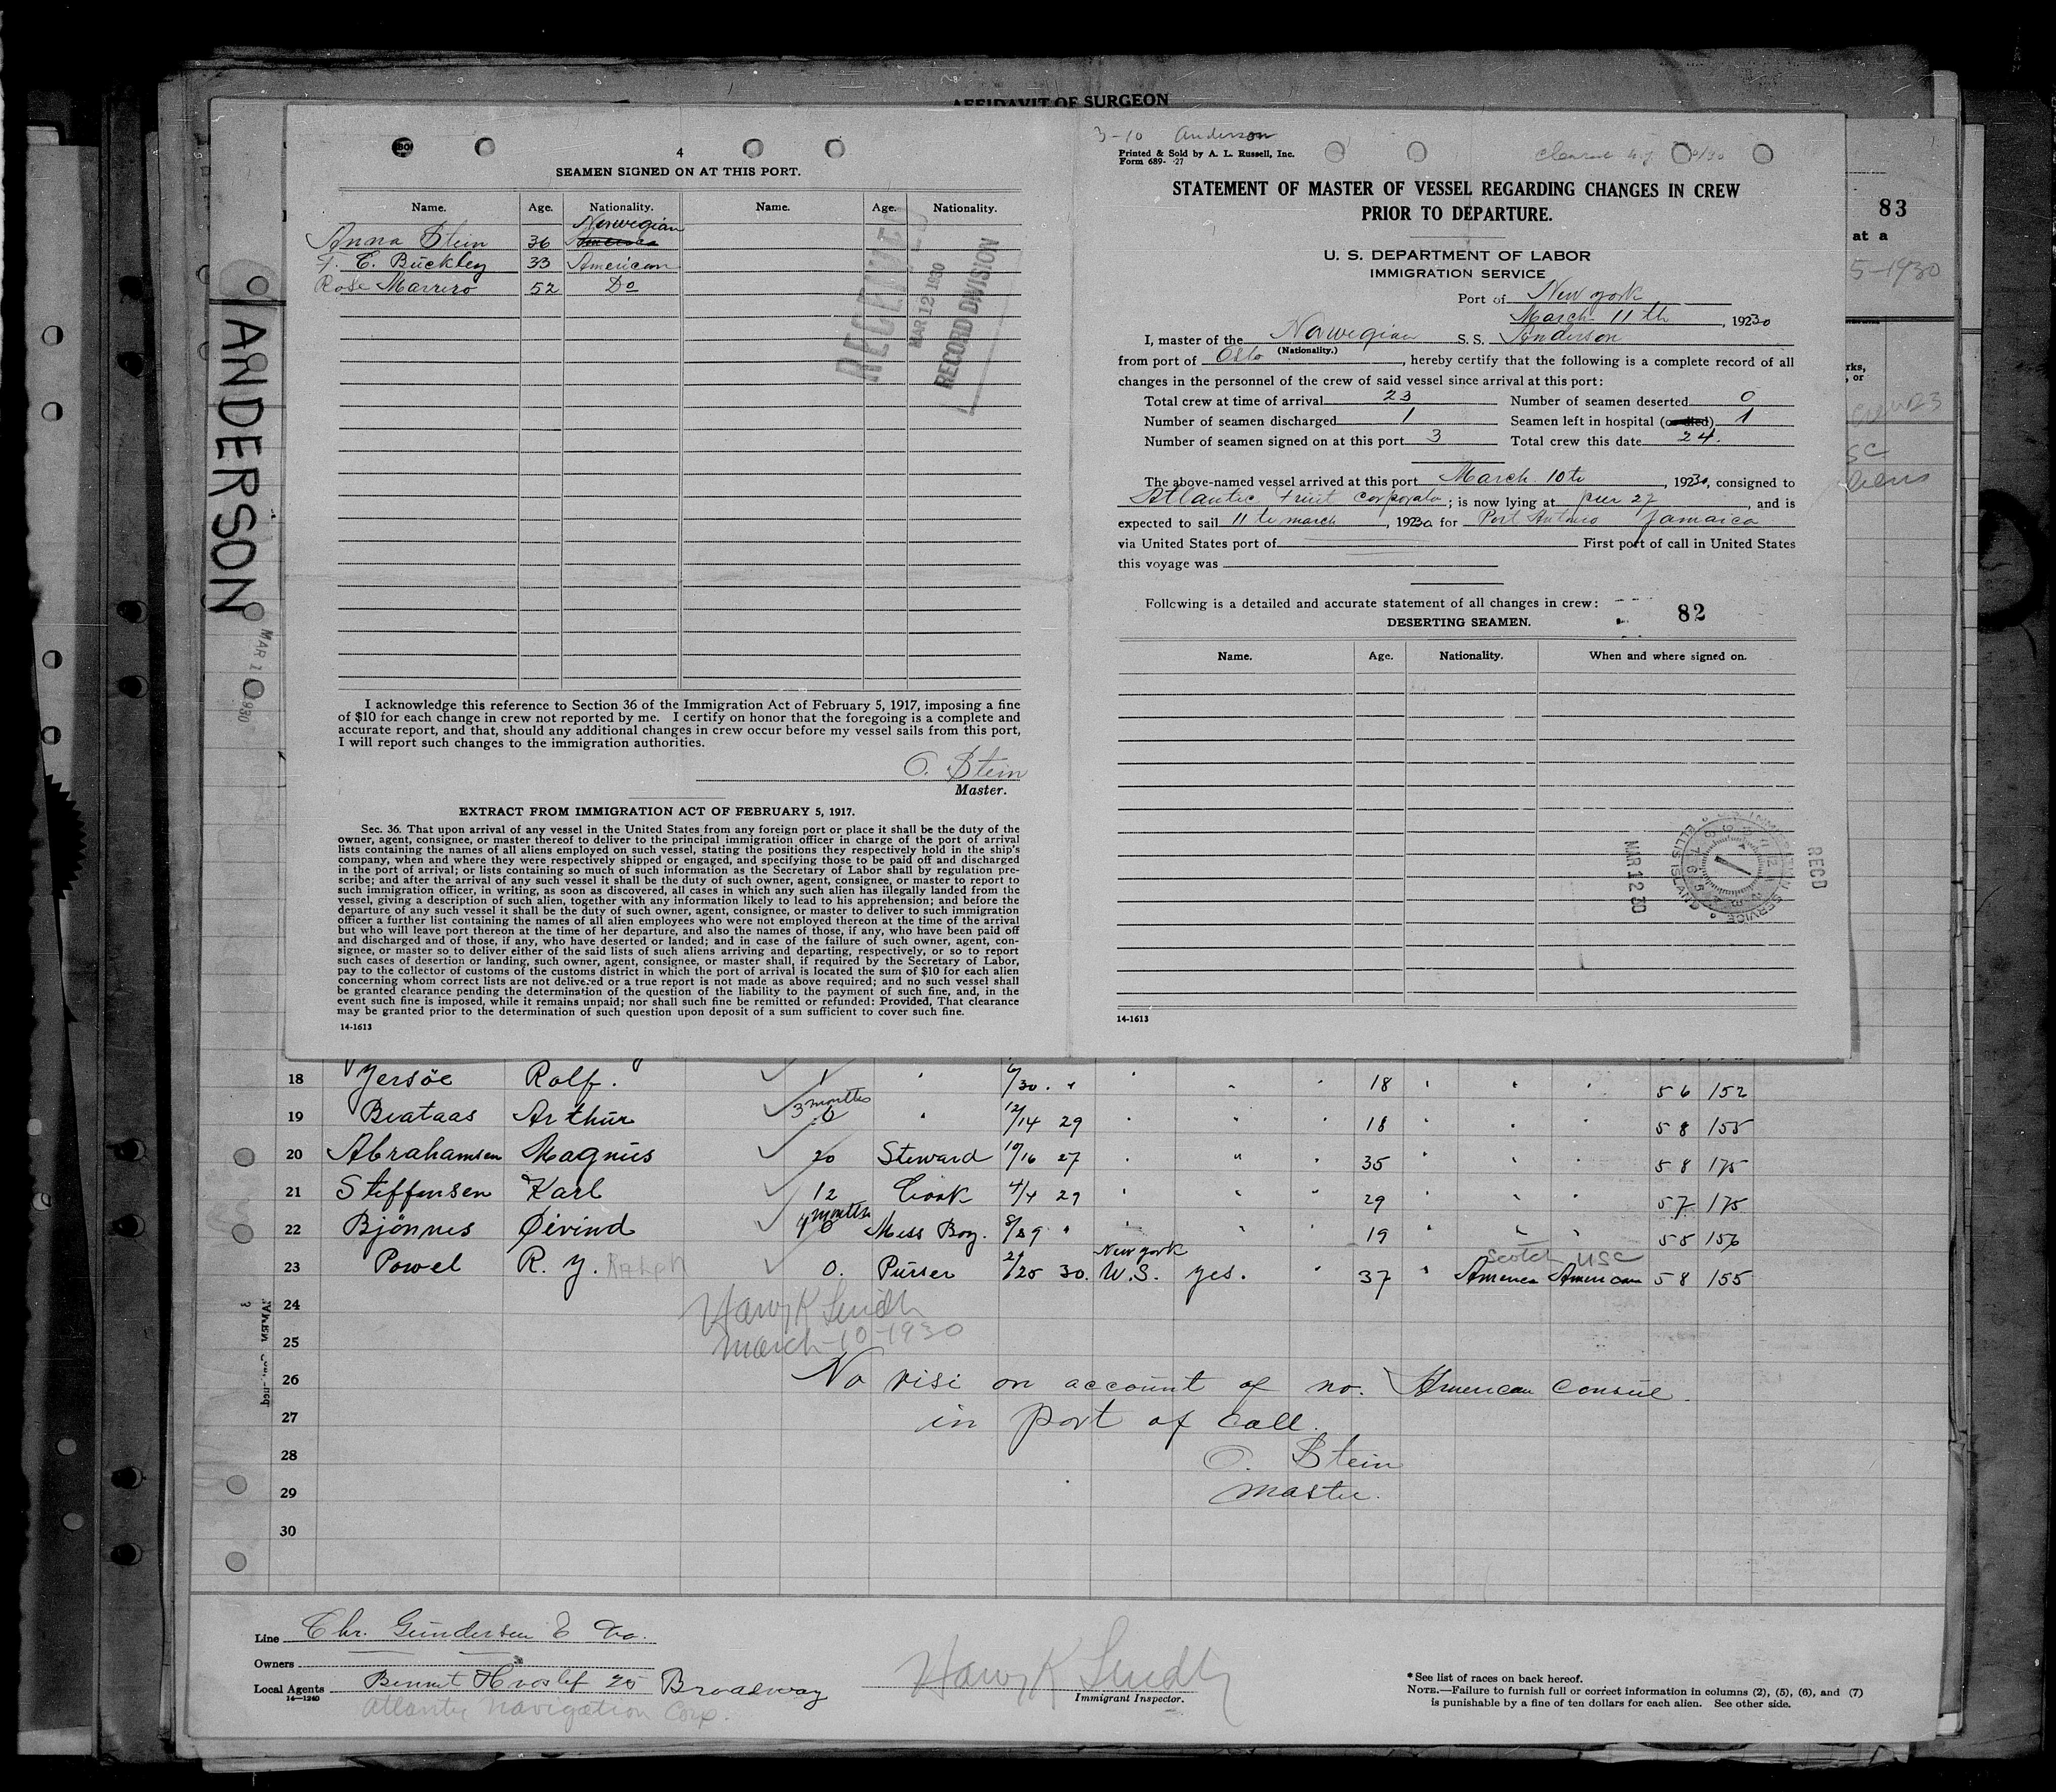 AFFIDAVIT OF SURGEON
4
SEAMEN SIGNED ON AT THIS PORT.
Name. Age. Nationality. Name. Age. Nationality.
Norwegian
Anna Stein 36
T. C. Buckley 33 American
Rose Marrero 52 Do
RECEIVED
MAR 12 1930
RECORD DIVISION
I acknowledge this reference to Section 36 of the Immigration Act of February 5, 1917, imposing a fine
of $10 for each change in crew not reported by me. I certify on honor that the foregoing is a complete and
accurate report, and that, should any additional changes in crew occur before my vessel sails from this port,
I will report such changes to the immigration authorities.
O. Stein
Master.
EXTRACT FROM IMMIGRATION ACT OF FEBRUARY 5, 1917.
Sec. 36. That upon arrival of any vessel in the United States from any foreign port or place it shall be the duty of the
owner, agent, consignee, or master thereof to deliver to the principal immigration officer in charge of the port of arrival
lists containing the names of all aliens employed on such vessel, stating the positions they respectively hold in the ship's
company, when and where they were respectively shipped or engaged, and specifying those to be paid off and discharged
in the port of arrival; or lists containing so much of such information as the Secretary of Labor shall by regulation pre-
scribe; and after the arrival of any such vessel it shall be the duty of such owner, agent, consignee, or master to report to
such immigration officer, in writing, as soon as discovered, all cases in which any such alien has illegally landed from the
vessel, giving a description of such alien, together with any information likely to lead to his apprehension; and before the
departure of any such vessel it shall be the duty of such owner, agent, consignee, or master to deliver to such immigration
officer a further list containing the names of all alien employees who were not employed thereon at the time of the arrival
but who will leave port thereon at the time of her departure, and also the names of those, if any, who have been paid off
and discharged and of those, if any, who have deserted or landed; and in case of the failure of such owner, agent, con-
signee, or master so to deliver either of the said lists of such aliens arriving and departing, respectively, or so to report
such cases of desertion or landing, such owner, agent, consignee, or master shall, if required by the Secretary of Labor,
pay to the collector of customs of the customs district in which the port of arrival is located the sum of $10 for each alien
concerning whom correct lists are not delivered or a true report is not made as above required; and no such vessel shall
be granted clearance pending the determination of the question of the liability to the payment of such fine, and, in the
event such fine is imposed, while it remains unpaid; nor shall such fine be remitted or refunded: Provided, That clearance
may be granted prior to the determination of such question upon deposit of a sum sufficient to cover such fine.
14-1613
ANDERSON
MAR 10 1930
3-10 Anderson
Printed & Sold by A. L. Russell, Inc.
Form 689- -27
STATEMENT OF MASTER OF VESSEL REGARDING CHANGES IN CREW
PRIOR TO DEPARTURE.
U. S. DEPARTMENT OF LABOR
IMMIGRATION SERVICE
Port of New york
March 11 th, 19230
I, master of the Norwegian S. S. Anderson
(Nationality.)
from port of Oslo, hereby certify that the following is a complete record of all
changes in the personnel of the crew of said vessel since arrival at this port:
Total crew at time of arrival 23 Number of seamen deserted 0
Number of seamen discharged 1 Seamen left in hospital (or died) 1
Number of seamen signed on at this port 3 Total crew this date 24.
The above-named vessel arrived at this port March 10th, 19230, consigned to
Atlantic Fruit Corporatn; is now lying at pier 27, and is
expected to sail 11 th march, 19230 for Port Antonio Jamaica
via United States port of First port of call in United States
this voyage was
Following is a detailed and accurate statement of all changes in crew:
82
DESERTING SEAMEN.
Name. Age. Nationality. When and where signed on.
RECD
IMMIGRATION SERVICE
ELLIS ISLAND
MAR 12 30
14-1613
83
at a
5-1930
18 Jersöe Rolf. 1 6/30. " 18 56 152
19 Brataas Arthur 3 months 0 12/14 29 18 58 155
20 Abrahamsen Magnus 20 Steward 10/16 27 " 35 58 175
21 Steffensen Karl 12 Cook 4/4 29 29 57 175
22 Bjönnes Øivind 4 months 0 Mess Boy. 8/29 " 19 55 156
New york Scotch USC
23 Powel R. Y. Ralph 0. Purser 2/25 30. W.S. yes. " 37 " America American 58 155
24
Harry K Lindh
25
March-10-1930
26 No visi on account of no. American Consul
27 in port of call.
28 O. Stein
29 Master.
30
Line Chr. Gundersen & Co.
Owners
Local Agents Bennet Hvoslef 25 Broadway
14-1240
Atlantic Navigation Corp.
Harry K Lindh
Immigrant Inspector.
*See list of races on back hereof.
NOTE.—Failure to furnish full or correct information in columns (2), (5), (6), and (7)
is punishable by a fine of ten dollars for each alien. See other side.